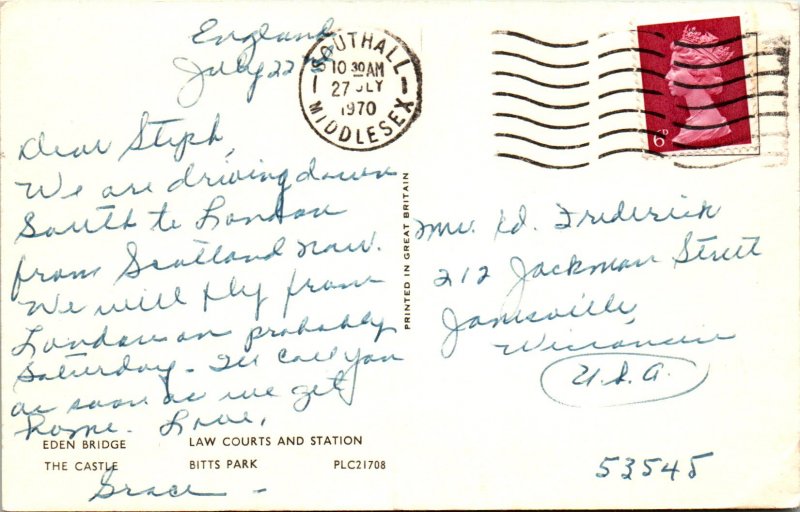 England
July 22nd
SOUTHALL
10 30 AM
27 JLY
1970
MIDDLESEX
6D
Dear Steph,
We are driving down
South to London
from Scotland now.
We will fly from
London on probably
Saturday - I'll call you
as soon as we get
home. Love,
Grace -
PRINTED IN GREAT BRITAIN
Mr. Ed. Frederick
212 Jackman Street
Janesville,
Wisconsin
U.S.A.
53545
EDEN BRIDGE LAW COURTS AND STATION
THE CASTLE BITTS PARK PLC21708